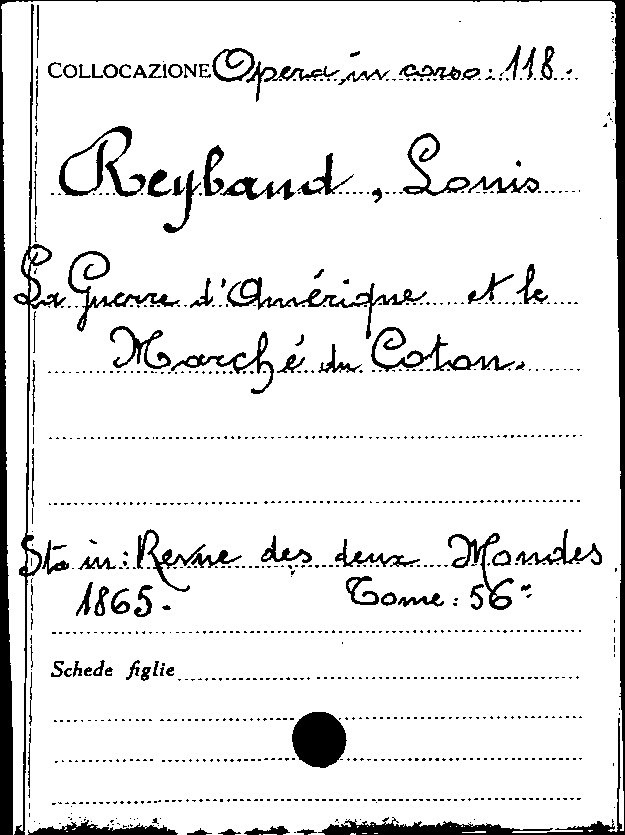 COLLOCAZIONE Opera in corso: 118.
Reybaud, Louis
La Guerre d'Amérique et le
Marché du Coton.
Sta in: Revue des deux Mondes
1865. Tome: 56º
Schede figlie